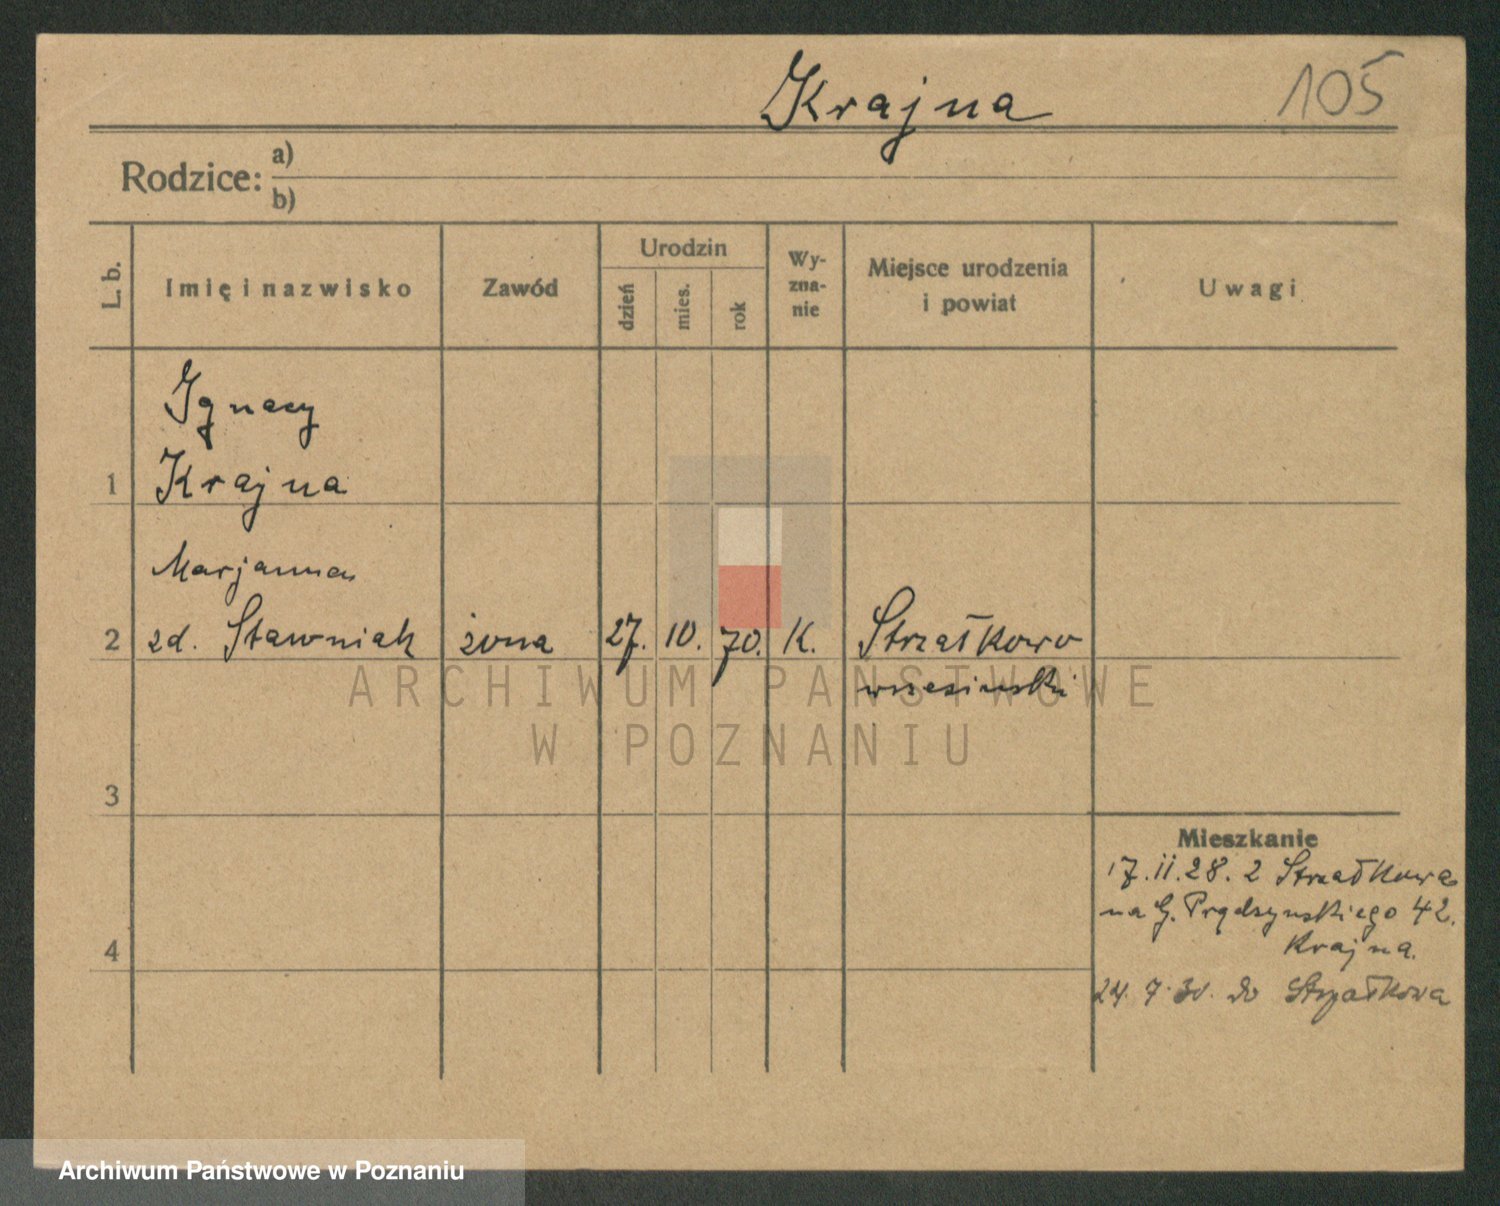 Krajna 105
Rodzice: a)
b)
L. b. Imię i nazwisko Zawód Urodzin dzień mies. rok Wy-zna-nie Miejsce urodzenia i powiat Uwagi
Ignacy
1 Krajna
Marjanna
2 zd. Stawniak żona 27. 10. 70. K. Strzałkowo
wrzesiński
ARCHIWUM PAŃSTWOWE
W POZNANIU
3
Mieszkanie
17.II.28. z Strzałkowa
na G. Prądzynskiego 42.
4 Krajna.
24. 7. 30. do Strzałkowa
Archiwum Państwowe w Poznaniu